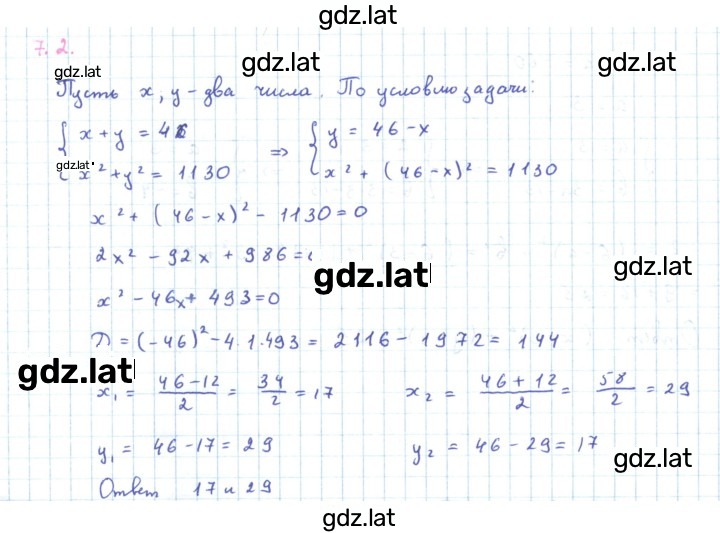 gdz.lat
7.2.
gdz.lat gdz.lat gdz.lat
Пусть x, y - два числа. По условию задачи:
{ x + y = 46 => { y = 46 - x
gdz.lat
x² + y² = 1130 x² + (46 - x)² = 1130
x² + (46 - x)² - 1130 = 0
2x² - 92x + 986 = 0
gdz.lat gdz.lat
x² - 46x + 493 = 0
D = (-46)² - 4·1·493 = 2116 - 1972 = 144
gdz.lat
x₁ = 46-12/2 = 34/2 = 17 x₂ = 46+12/2 = 58/2 = 29
y₁ = 46 - 17 = 29 y₂ = 46 - 29 = 17
gdz.lat
Ответ 17 и 29
gdz.lat